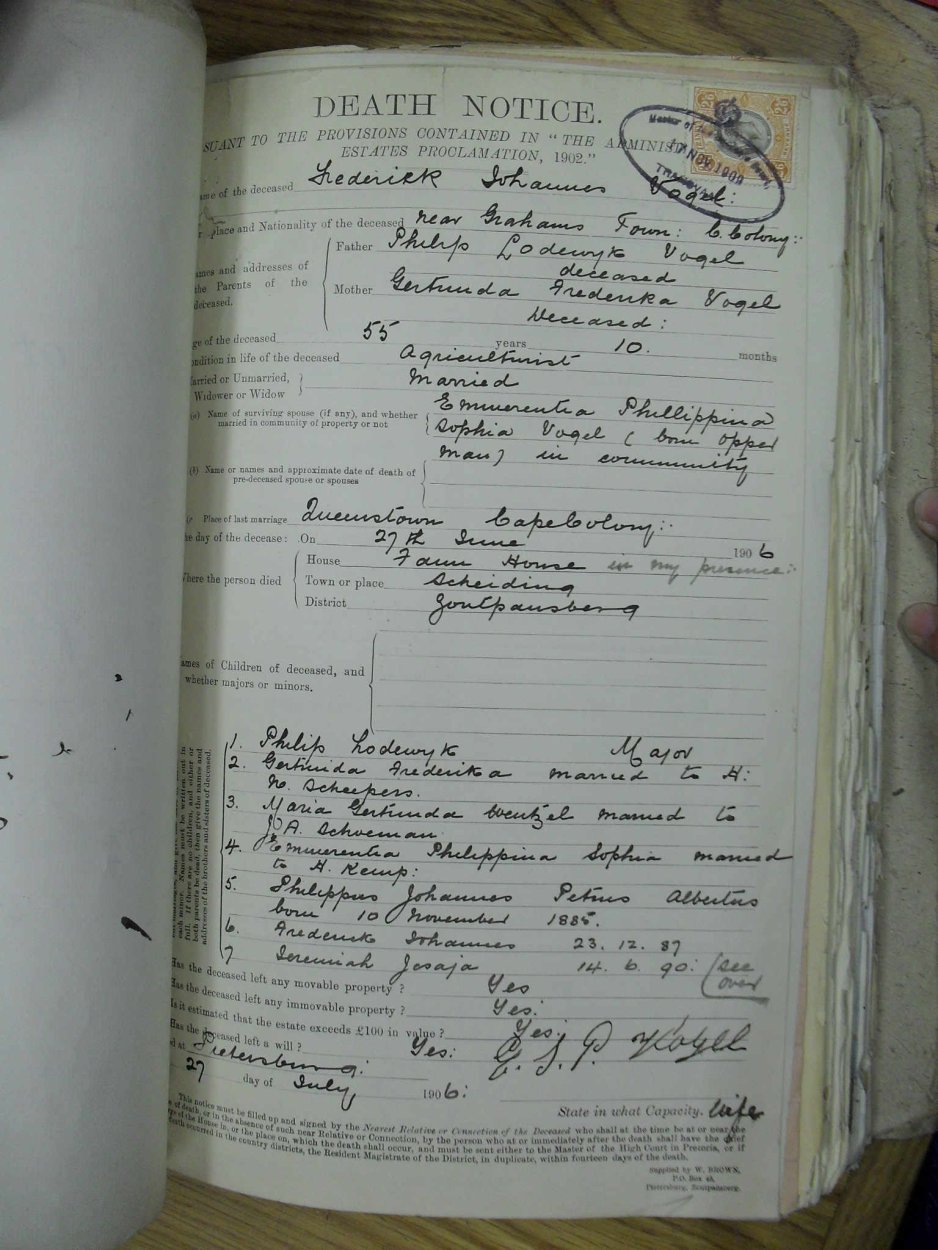 DEATH NOTICE.
SUANT TO THE PROVISIONS CONTAINED IN "THE ADMINIS
ESTATES PROCLAMATION, 1902."
Master of the
17 NOV 1909
TRANSVAAL
2/6 2/6
ame of the deceased Frederick Johannes Vogel:
place and Nationality of the deceased near Grahams Town: C. Colony:
ames and addresses of the Parents of the deceased.
Father Philip Lodewyk Vogel
deceased
Mother Gertruida Frederika Vogel
Deceased:
ge of the deceased 55 years 10. months
ondition in life of the deceased Agriculturist
arried or Unmarried, Widower or Widow } Married
(a) Name of surviving spouse (if any), and whether married in community of property or not
Emmerentia Phillippina
Sophia Vogel (born opper
man) in community
(b) Name or names and approximate date of death of pre-deceased spouse or spouses
(c Place of last marriage Queenstown Cape Colony:
he day of the decease: On 27th June 1906
Where the person died
House Farm House in my presence:
Town or place Scheiding
District Zoutpansberg
ames of Children of deceased, and whether majors or minors.
each minor. Names must be written out in
full. If there are no children, and either or
both parents be dead, then give the names and
addresses of the brothers and sisters of deceased.
1. Philip Lodewyk Major
2. Gertruida Frederika married to H:
No. Scheepers.
3. Maria Gertruida Wentzel married to
J A. Schoeman
4. Emmerentia Philippina Sophia married
to H. Kemp:
5. Philippus Johannes Petrus Albertus
born 10 November 1885.
6. Frederick Johannes 23. 12. 87
7 Jeremiah Jesaja 14. 6. 90: (see
over
Has the deceased left any movable property ? Yes
Has the deceased left any immovable property ? Yes:
Is it estimated that the estate exceeds £100 in value ? Yes:
Has the deceased left a will ? Yes:
E. S. P. Vogel
d at Pietersburg:
27 day of July, 1906:
State in what Capacity. Wife
This notice must be filled up and signed by the Nearest Relative or Connection of the Deceased who shall at the time be at or near the
of death, or in the absence of such near Relative or Connection, by the person who at or immediately after the death shall have the chief
ge of the House in, or the place on, which the death shall occur, and must be sent either to the Master of the High Court in Pretoria, or if
death occurred in the country districts, the Resident Magistrate of the District, in duplicate, within fourteen days of the death.
Supplied by W. BROWN,
P.O. Box 45,
Pietersburg, Zoutpansberg.